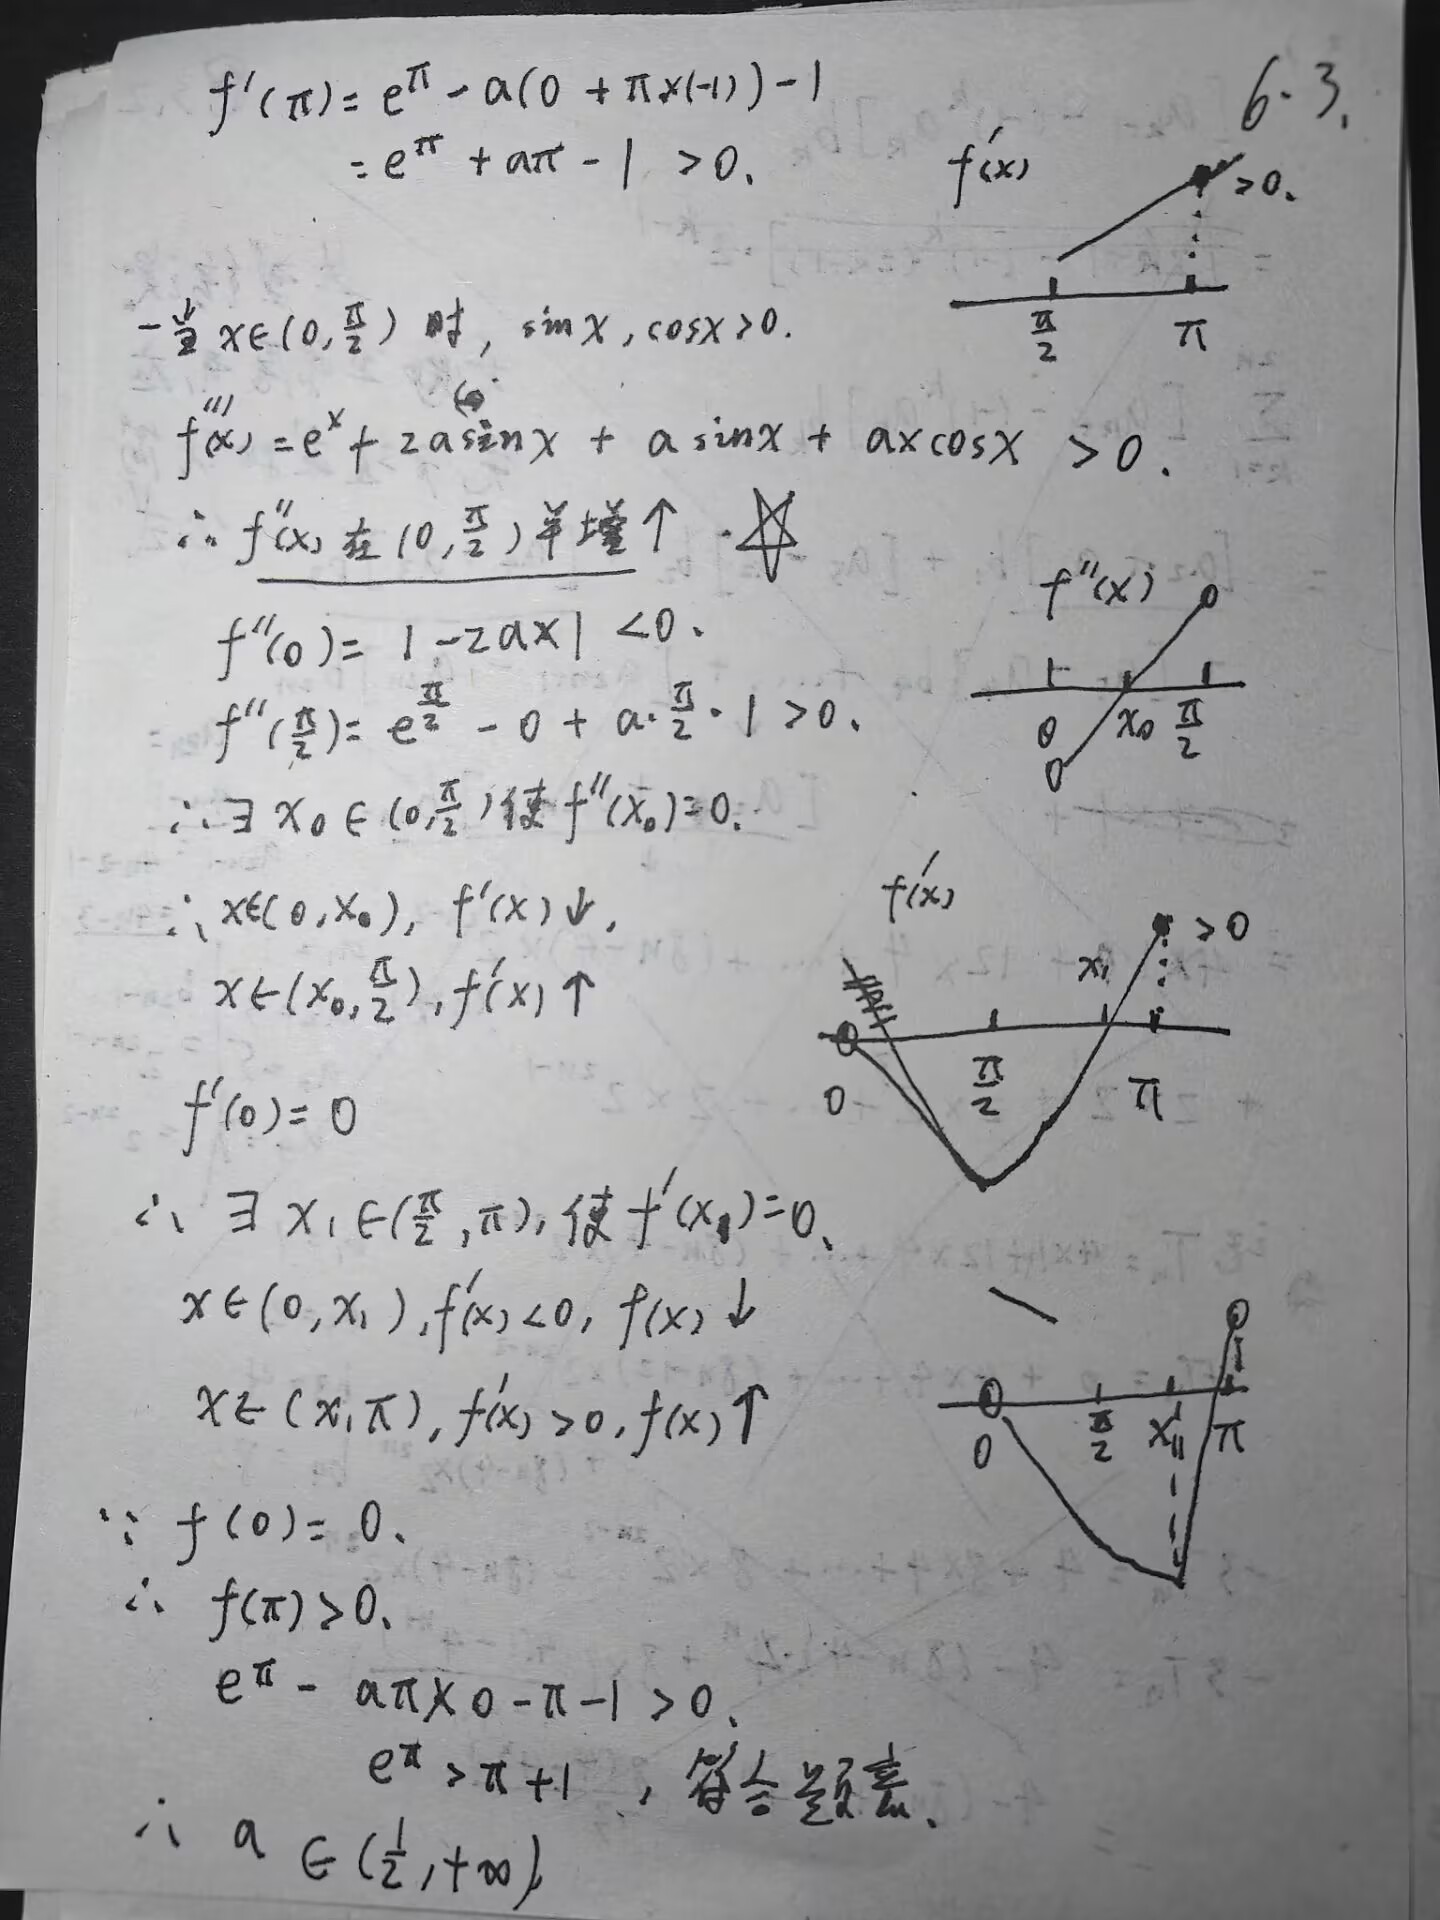 6-3.
f'(π)=e^π-a(0+π×(-1))-1
=e^π+aπ-1 >0.
f'(x)
>0.
π/2 π
-当x∈(0,π/2)时, sinx,cosx>0.
f'''(x)=e^x+2asinx+asinx+axcosx >0.
∴f''(x)在(0,π/2)单增↑ ·☆
f''(x)
f''(0)=1-2a×1<0.
0 x₀ π/2
f''(π/2)=e^(π/2)-0+a·π/2·1>0.
∴∃x₀∈(0,π/2)使f''(x₀)=0.
f'(x)
∴x∈(0,x₀), f'(x)↓.
x₁ >0
x∈(x₀,π/2),f'(x)↑
0 π/2 π
f'(0)=0
∴∃x₁∈(π/2,π),使f'(x₁)=0.
x∈(0,x₁),f'(x)<0, f(x)↓
x∈(x₁π),f'(x)>0,f(x)↑
0 π/2 x₁ π
∵f(0)=0.
∴f(π)>0.
e^π-aπ×0-π-1>0.
e^π>π+1 ,符合题意.
∴a∈(1/2,+∞)